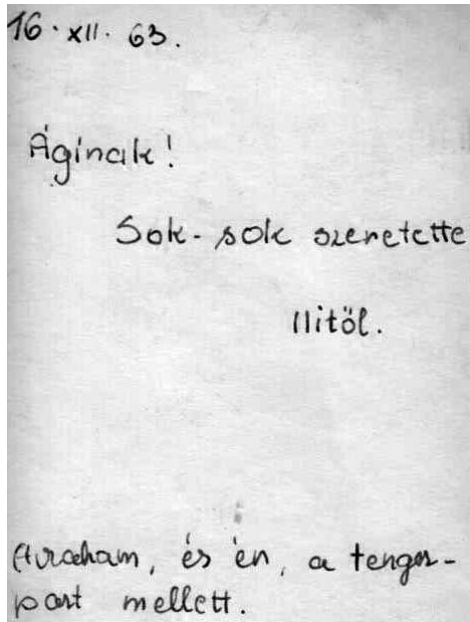 16. XII. 63.
Áginak!
Sok-sok szeretette
Ilitöl.
Avraham, és én, a tenger-
part mellett.